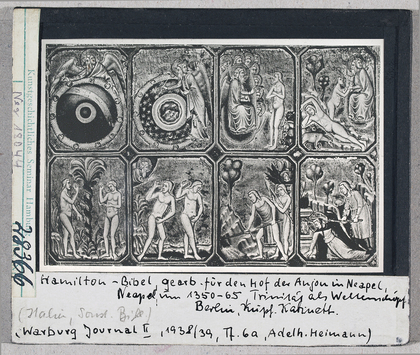 Kunstgeschichtliches Seminar Hamburg
48366
Hamilton-Bibel, gearb. für den Hof der Anjou in Neapel,
Neapel, um 1350-65 Trinität als Weltenschöpf.
Berlin, Kupf. Kabinett.
(Italien, Sond. Bibl)
(Warburg Journal II, 1938/39, Tf. 6a, Adelh. Heimann)